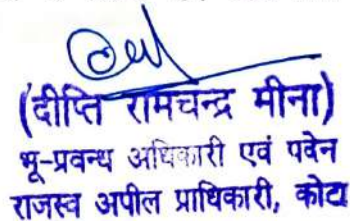 (दीप्ति रामचन्द्र मीना)
भू-प्रवन्ध अधिकारी एवं पदेन
राजस्व अपील प्राधिकारी, कोटा